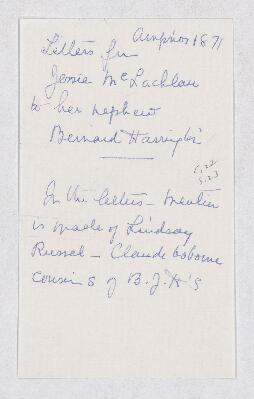 Arnprior 1871
Letters fm
Jessie McLachlan
to her nephew
Bernard Harrington
5,22
5.23
In the letters - mention
is made of Lindsay
Russel - Claude Osborne
cousins of B.J.H's